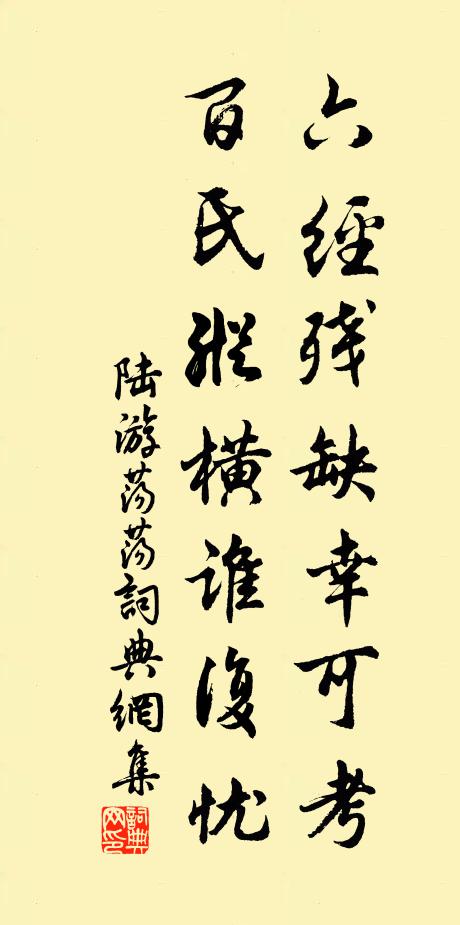 六經殘缺幸可考
百氏縱橫誰復忧
陆游荡荡詞典網集
詞典网印